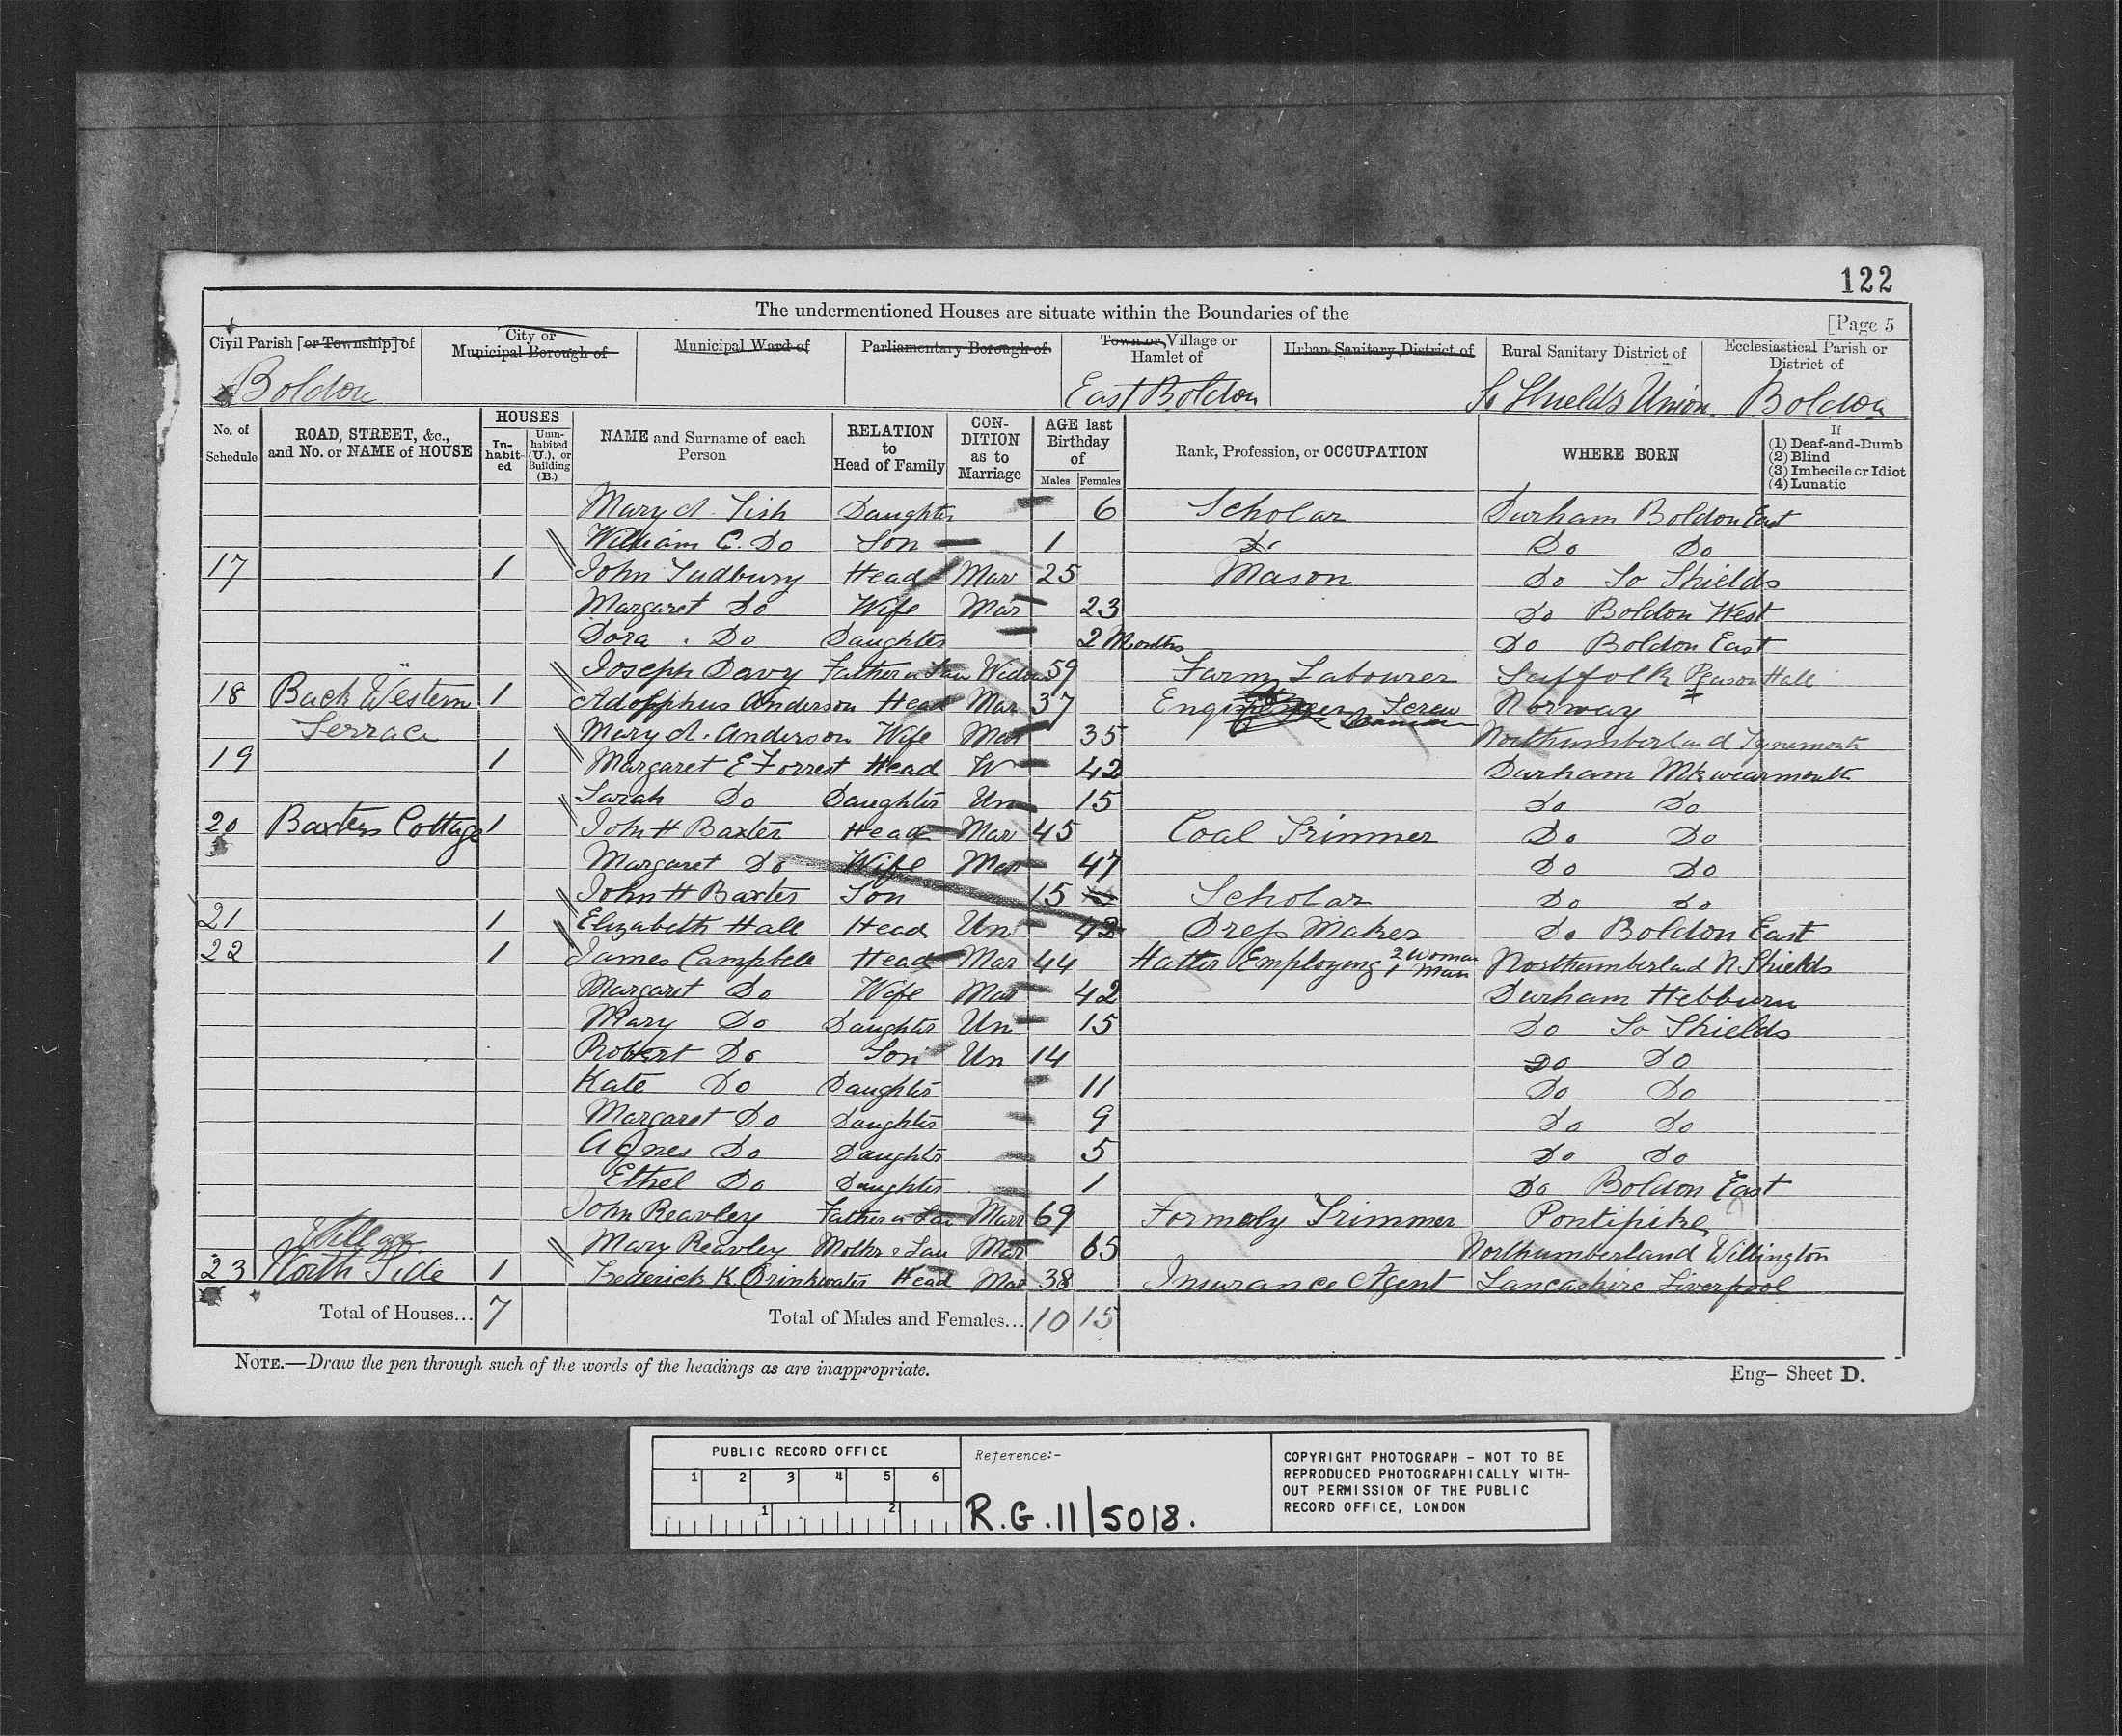 122
The undermentioned Houses are situate within the Boundaries of the
[Page 5
Civil Parish [or Township] of
City or Municipal Borough of
Municipal Ward of
Parliamentary Borough of
Town or Village or Hamlet of
Urban Sanitary District of
Rural Sanitary District of
Ecclesiastical Parish or District of
Boldon East Boldon So Shields Union Boldon
No. of Schedule
ROAD, STREET, &c., and No. or NAME of HOUSE
HOUSES
In-habit-ed
Unin-habited (U.), or Building (B.)
NAME and Surname of each Person
RELATION to Head of Family
CON-DITION as to Marriage
AGE last Birthday of
Males Females
Rank, Profession, or OCCUPATION
WHERE BORN
If
(1) Deaf-and-Dumb
(2) Blind
(3) Imbecile or Idiot
(4) Lunatic
Mary A. Daughter 6 Scholar Durham Boldon East
William C. Do Son 1 Do Do Do
17 1 John Tudbury Head Mar 25 Mason Do So Shields
Margaret Do Wife Mar 23 Do Boldon West
Dora Do Daughter 2 Months Do Boldon East
Joseph Davy Father in Law Widow 59 Farm Labourer Suffolk Hall
18 Back Western 1 Adolphus Anderson Head Mar 37 Engineer Screw Norway
Terrace Mary A. Anderson Wife Mar 35 Northumberland Tynemouth
19 1 Margaret E Forrest Head W 42 Durham Mkwearmouth
Sarah Do Daughter Un 15 Do Do
20 Baxters Cottage 1 John H Baxter Head Mar 45 Coal Trimmer Do Do
Margaret Do Wife Mar 47 Do Do
John H Baxter Son 15 Scholar Do Do
21 1 Elizabeth Hall Head Un 42 Dress Maker Do Boldon East
22 1 James Campbell Head Mar 44 Hatter Employing 2 Woman 1 Man Northumberland N Shields
Margaret Do Wife Mar 42 Durham Hebburn
Mary Do Daughter Un 15 Do So Shields
Robert Do Son Un 14 Do Do
Kate Do Daughter 11 Do Do
Margaret Do Daughter 9 Do Do
Agnes Do Daughter 5 Do Do
Ethel Do Daughter 1 Do Boldon East
John Reavley Father in Law Marr 69 Formerly Trimmer Pontipike
Village Mary Reavley Mother in Law Mar 65 Northumberland Willington
23 North Side 1 Frederick K Drinkwater Head Mar 38 Insurance Agent Lancashire Liverpool
Total of Houses... 7 Total of Males and Females... 10 15
NOTE.—Draw the pen through such of the words of the headings as are inappropriate.
Eng– Sheet D.
PUBLIC RECORD OFFICE
1 2 3 4 5 6
1 2
Reference:-
R.G.11/5018.
COPYRIGHT PHOTOGRAPH - NOT TO BE
REPRODUCED PHOTOGRAPHICALLY WITH-
OUT PERMISSION OF THE PUBLIC
RECORD OFFICE, LONDON